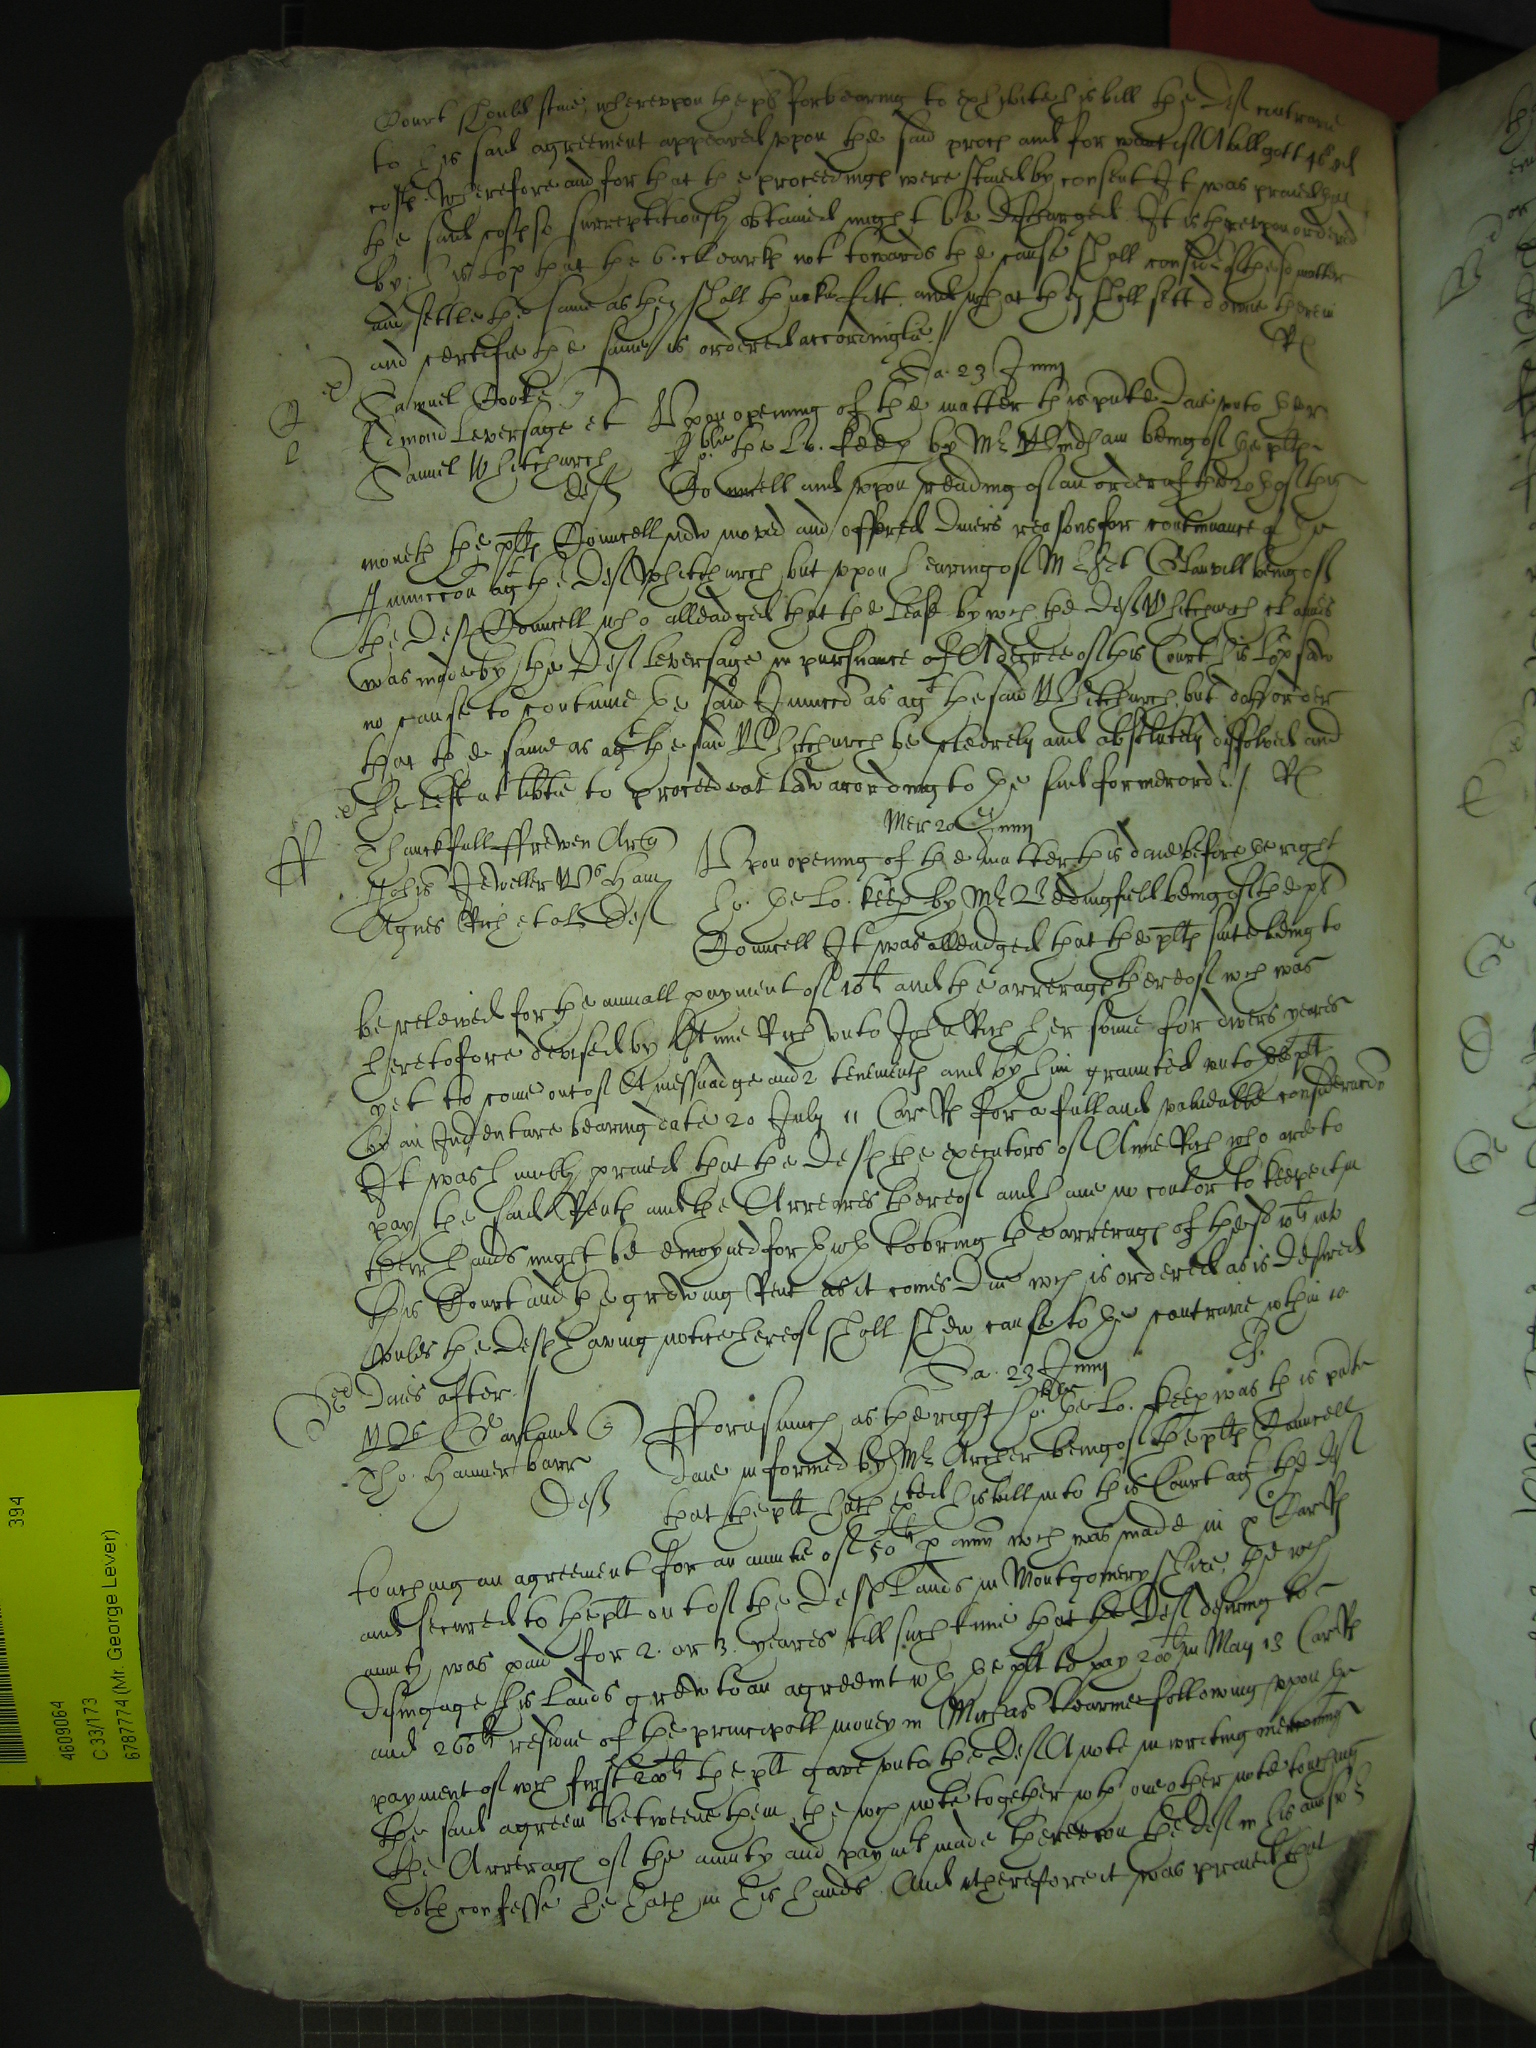 Court should sitte, whereupon the pl forbearing to exhibite his bill the Def contrarie
to his said agreement appeared upon the said proces and for want of A bill gott
costs Wherefore and for that the proceedings were staied by consent It was praied that
the said costs so surreptitiously obtained might be discharged It is thereupon ordered
by his Lop that the 6 clearks not towards the cause shall consider of the sd matter
and settle the same as they shall thinke fitt and what they shall sett downe therein
and certifie the same is ordered accordinglie //
Sa. 23 Junij
Samuel Cooke
Edmond Leversage et
Samuel Whitchurch
Defts
Upon opening of the matter this pnte Daie unto the r
hoble the Lo. keep by Mr Wyndham being of the plts
Councell and upon reading of an order of the 20th of this
moneth the plts Councell now moved and offered divers reasons for continuance of the
Iniunccon agt the Def Whitchurch but upon hearing of Mr Glanvill being of
the Defts Councell who alleadged that the lease by wch the Def Whitchurch claimes
was made by the Def Leversage in pursuance of A decree of this Court his Lop saw
no cause to continue the said Iniunccon as agt the said Whitchurch, but doth order
that the same as agt the said Whitchurch be cleerely and absolutely dissolved and
he left at libtie to proceed at law according to the said former order /
Mer 20 Junij
Thanckfull ffrewen Ar
Johis Jeweller Ws Ham
Agnes Rich et al Def
Upon opening of the matter this daie before the right
ho. the Lo. keep by Mr Bedingfield being of the pls
Councell It was alleadged that the plts suite being to
be releived for the annuall payment of 10li and the arrerages thereof wch was
heretofore devised by Anne Rich unto John Rich her sonne for divers yeares
yet to come out of A messuadge and 2 tenements and by him graunted unto the plt
by an Indenture bearing date 20 July 11 Car Rs for a full and valueable consideracon
It was humbly praied that the Defts the executors of Anne Rich who are to
pay the said Rents and the Arreares thereof and have no coulor to keepe it in
their hands might be enioyned forthwth to bring the arrerages of the sd 10li into
this Court and the growing Rent as it comes Due wch is ordered as is desired
unles the Defts having notice hereof shall shew cause to the contrarie wthin 10
Daies after /
Sa. 23 Junij
Ws Garland
Tho. Hanmer barr
Defts
fforasmuch as the right hoble the Lo. keep was this pnte
daie informed by Mr Archer being of the plts Councell
that the plt hath exhibited his bill into this Court agt the Def
touching an agreement for an annuitie of 50li p ann wch was made in po Car Rs
and secured to the plt out of the Defts lands in Montgomery shire, the wch
annuity was paid for 2. or 3. yeares till such time that the Def desiring to
disingage his lands grew to an agreemt wth the plt to pay 200li in May 13 Car Rs
and 260li residue of the principall money in Michas tearme following upon the
payment of wch first 200li the plt gave unto the Def A note in writing mencioning
the said agreemt betweene them, the wch note together wth one other note touching
the Arrerages of the annuity and paymts made thereon the Def in his answer
doth confesse he hath in his hands And therefore it was praied that
394
4609064
C 33/173
6787774 (Mr. George Lever)